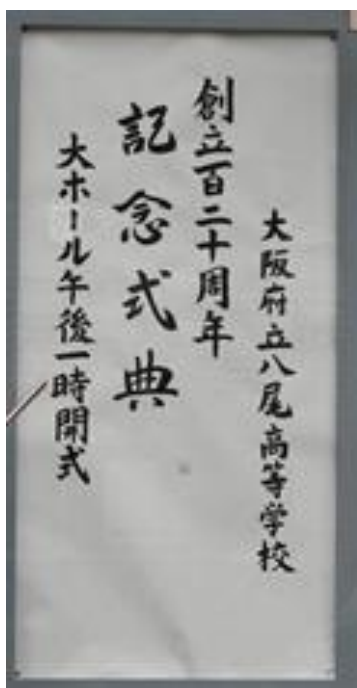 大阪府立八尾高等学校
創立百二十周年
記念式典
大ホール午後一時開式